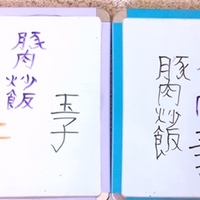 豚肉炒飯
玉子
豚肉炒飯